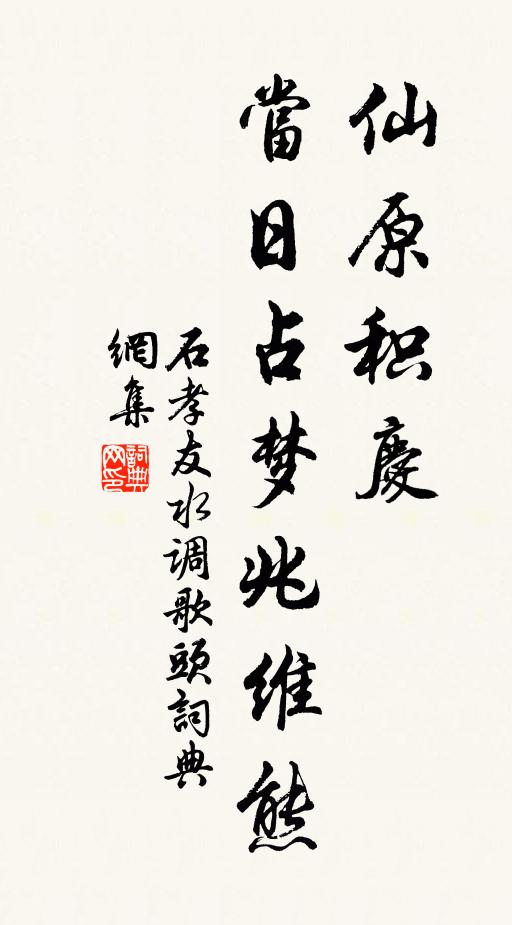 仙原积慶
當日占梦兆维熊
石孝友水调歌頭詞典
網集
詞典網印